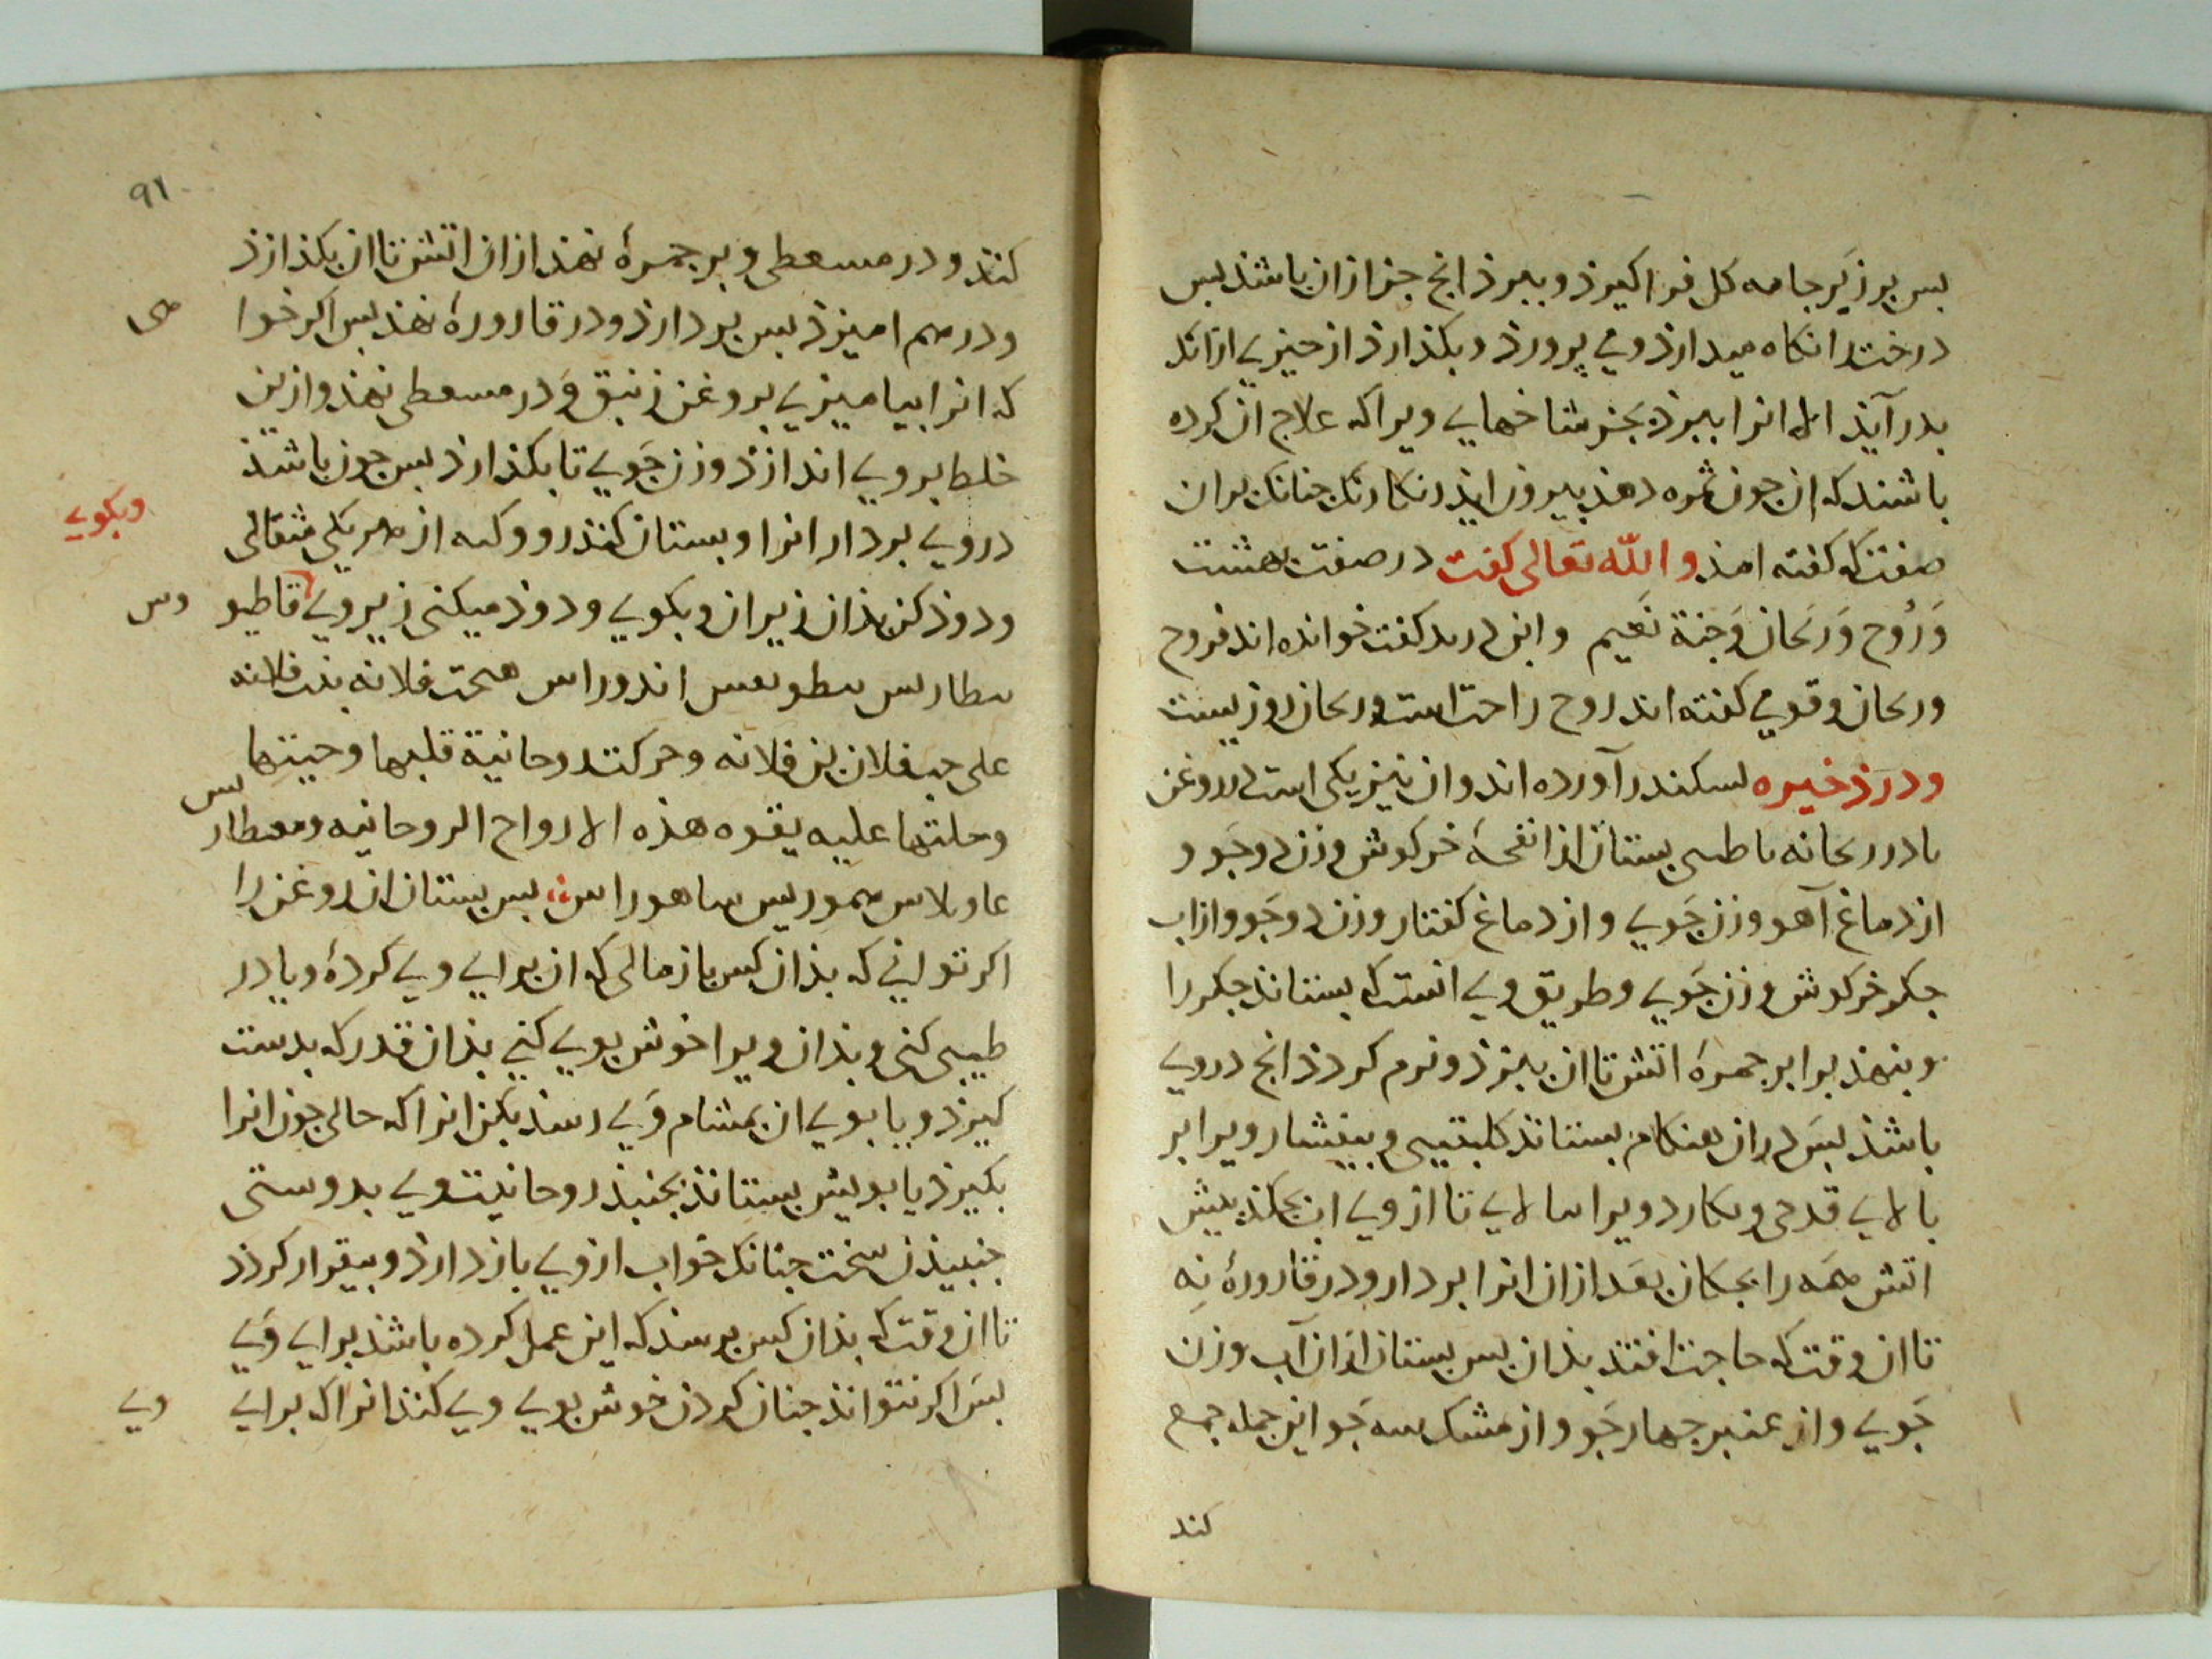 بس بر زیر جامه کل فرا کیرذ و ببرذ انج جز ازان باشذ بس
درخت را نکاه میدارذ و می پرورذ و بکذارذ از چیزی ازانک
بدر آیذ الا انرا ببرذ بجز شاخهای ویرا که علاج ان کرده
باشند که ان جون ثمره دهذ بیرون ایذ رنکارنک جنانک بران
صفت که کفته امذ و الله تعالی کفت در صفت بهشت
وَرَوْح وَرَیحان وَجَنة نَعیم و ابن درید کفت خوانده اند فروح
و ریحان و قومی کفته اند روح راحت است و ریحان روزیست
و در ذخیره اسکندر آورده اند و ان نیز یکی است
بستان از انفحهٔ خرکوش وزن دو جَو و
از دماغ آهو وزن جَوی و از دماغ کفتار وزن دو جَو و از اب
جکر خرکوش وزن جَوی و طریق وی انست که بستاند جکر را
و بنهذ برابر جمرهٔ اتش تا ان ببزذ و نرم کردذ انج دروی
باشذ بس دران هنکام بستاند کلبتینی و بیفشار ویرا بر
بالای قدحی و کارد ویرا تا از وی اب بجکذ بیش
اتش همَه را بجکان بعَد ازان انرا بردار و در قارورهٔ نِه
تا ان وقت که حاجت افتد بذان بس بستان ازان آب وزن
جَوی و از عنبر جهار جَو و از مشک سه جَو این جمله جمع
کند
۹۱
کنند و در مسعطی و بر جمرهٔ نهند ازان اتش تا ان بکذازذ
و در هم امیزذ بس بردارذ و در قارورهٔ نهذ بس اکر خوا
هی
که انرا بیامیزی بروغن زنبق وَ در مسعطی نهذ و ازین
خلط بروی اندازذ وزن جَوی تا بکذارذ بس جون باشذ
دروی بردار انرا و بستان کندر و از هر یکی مثقالی
وبکوی
و دوذ کن بذان زیر ان و بکوی و دوذ میکنی زیر وی قاطیو
وس
اندوراس هیجت فلانه بنت فلانه
علی حب فلان بن فلانه و حرکت روحانیة قلبها و حیتها
و حلتها علیه بقوه هذه الارواح الروحانیه و معطار
لس
بس بستان ان روغن را
اکر توانی که بذان کس باز مالی که ان برای وی کردهٔ و یا در
طیبی کنی و بذان ویرا خوش بوی کنی بذان قدر که بدست
کیرذ و یا بوی ان بمشام وَی رسذ بکن انرا که حالی جون انرا
بکیرذ یا بویش بستاند بجنبذ روحانیت وی بدوستی
جنبیدن سخت جنانک خواب از وی باز دارذ و بیقرار کردذ
تا ان وقت که بذان کس برسذ که این عمل کرده باشذ برای وَی
بس اکر نتواند جنان کردن خوش بوی وی کنند انرا که برای
وی